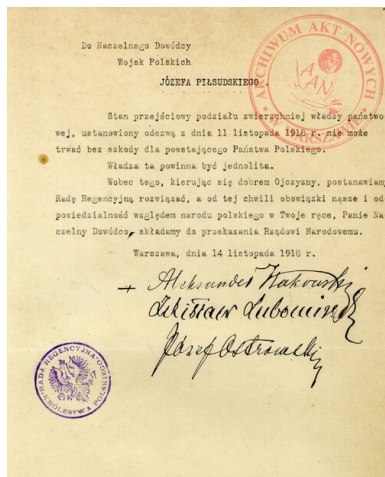 Do Naczelnego Dowódcy
Wojsk Polskich
JÓZEFA PIŁSUDSKIEGO.
Stan przejściowy podziału zwierzchniej władzy państwo
wej, ustanowiony odezwą z dnia 11 listopada 1918 r. nie może
trwać bez szkody dla powstającego Państwa Polskiego.
Władza ta powinna być jednolita.
Wobec tego, kierując się dobrem Ojczyzny, postanawiamy
Radę Regencyjną rozwiązać, a od tej chwili obowiązki nasze i od
powiedzialność względem narodu polskiego w Twoje ręce, Panie Na
czelny Dowódco, składamy do przekazania Rządowi Narodowemu.
Warszawa, dnia 14 listopada 1918 r.
+ Aleksander Kakowski
Zdzisław Lubomirski
Józef Ostrowski
ARCHIWUM AKT NOWYCH
AAN
W WARSZAWIE
RADA REGENCYJNA
KRÓLESTWA POLSKIEGO